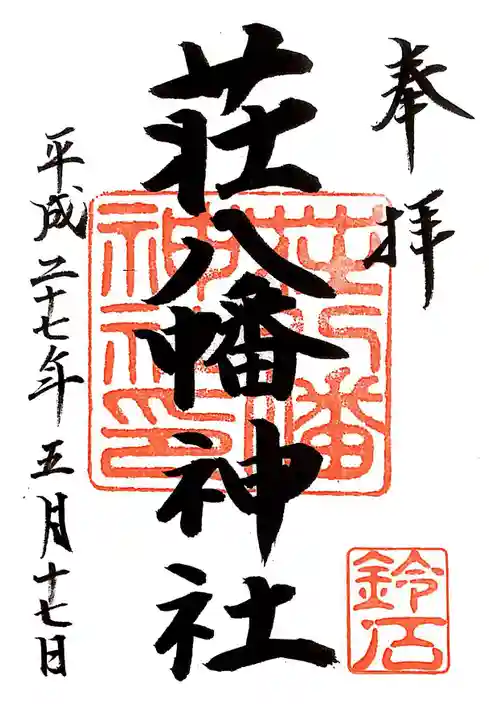 奉拝
荘八幡神社
平成二十七年五月十七日
荘八幡
神社印
鈴石